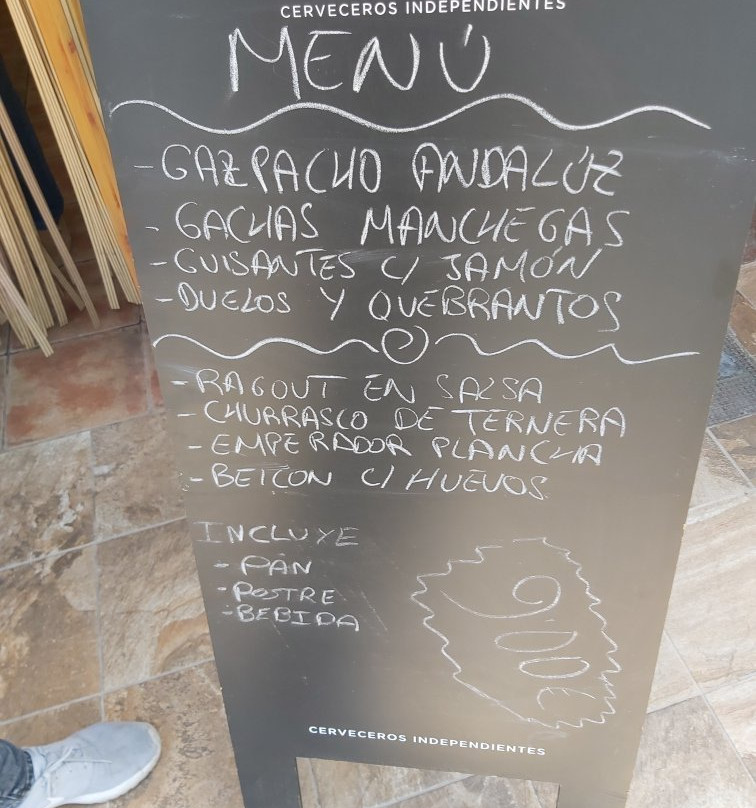 CERVECEROS INDEPENDIENTES
MENÚ
-GAZPACHO ANDALÚZ
-GACHAS MANCHEGAS
-GUISANTES C/ JAMÓN
-DUELOS Y QUEBRANTOS
-RAGOUT EN SALSA
-CHURRASCO DE TERNERA
-EMPERADOR PLANCHA
-BEICON C/ HUEVOS
INCLUYE
-PAN
-POSTRE
-BEBIDA
9'00€
CERVECEROS INDEPENDIENTES